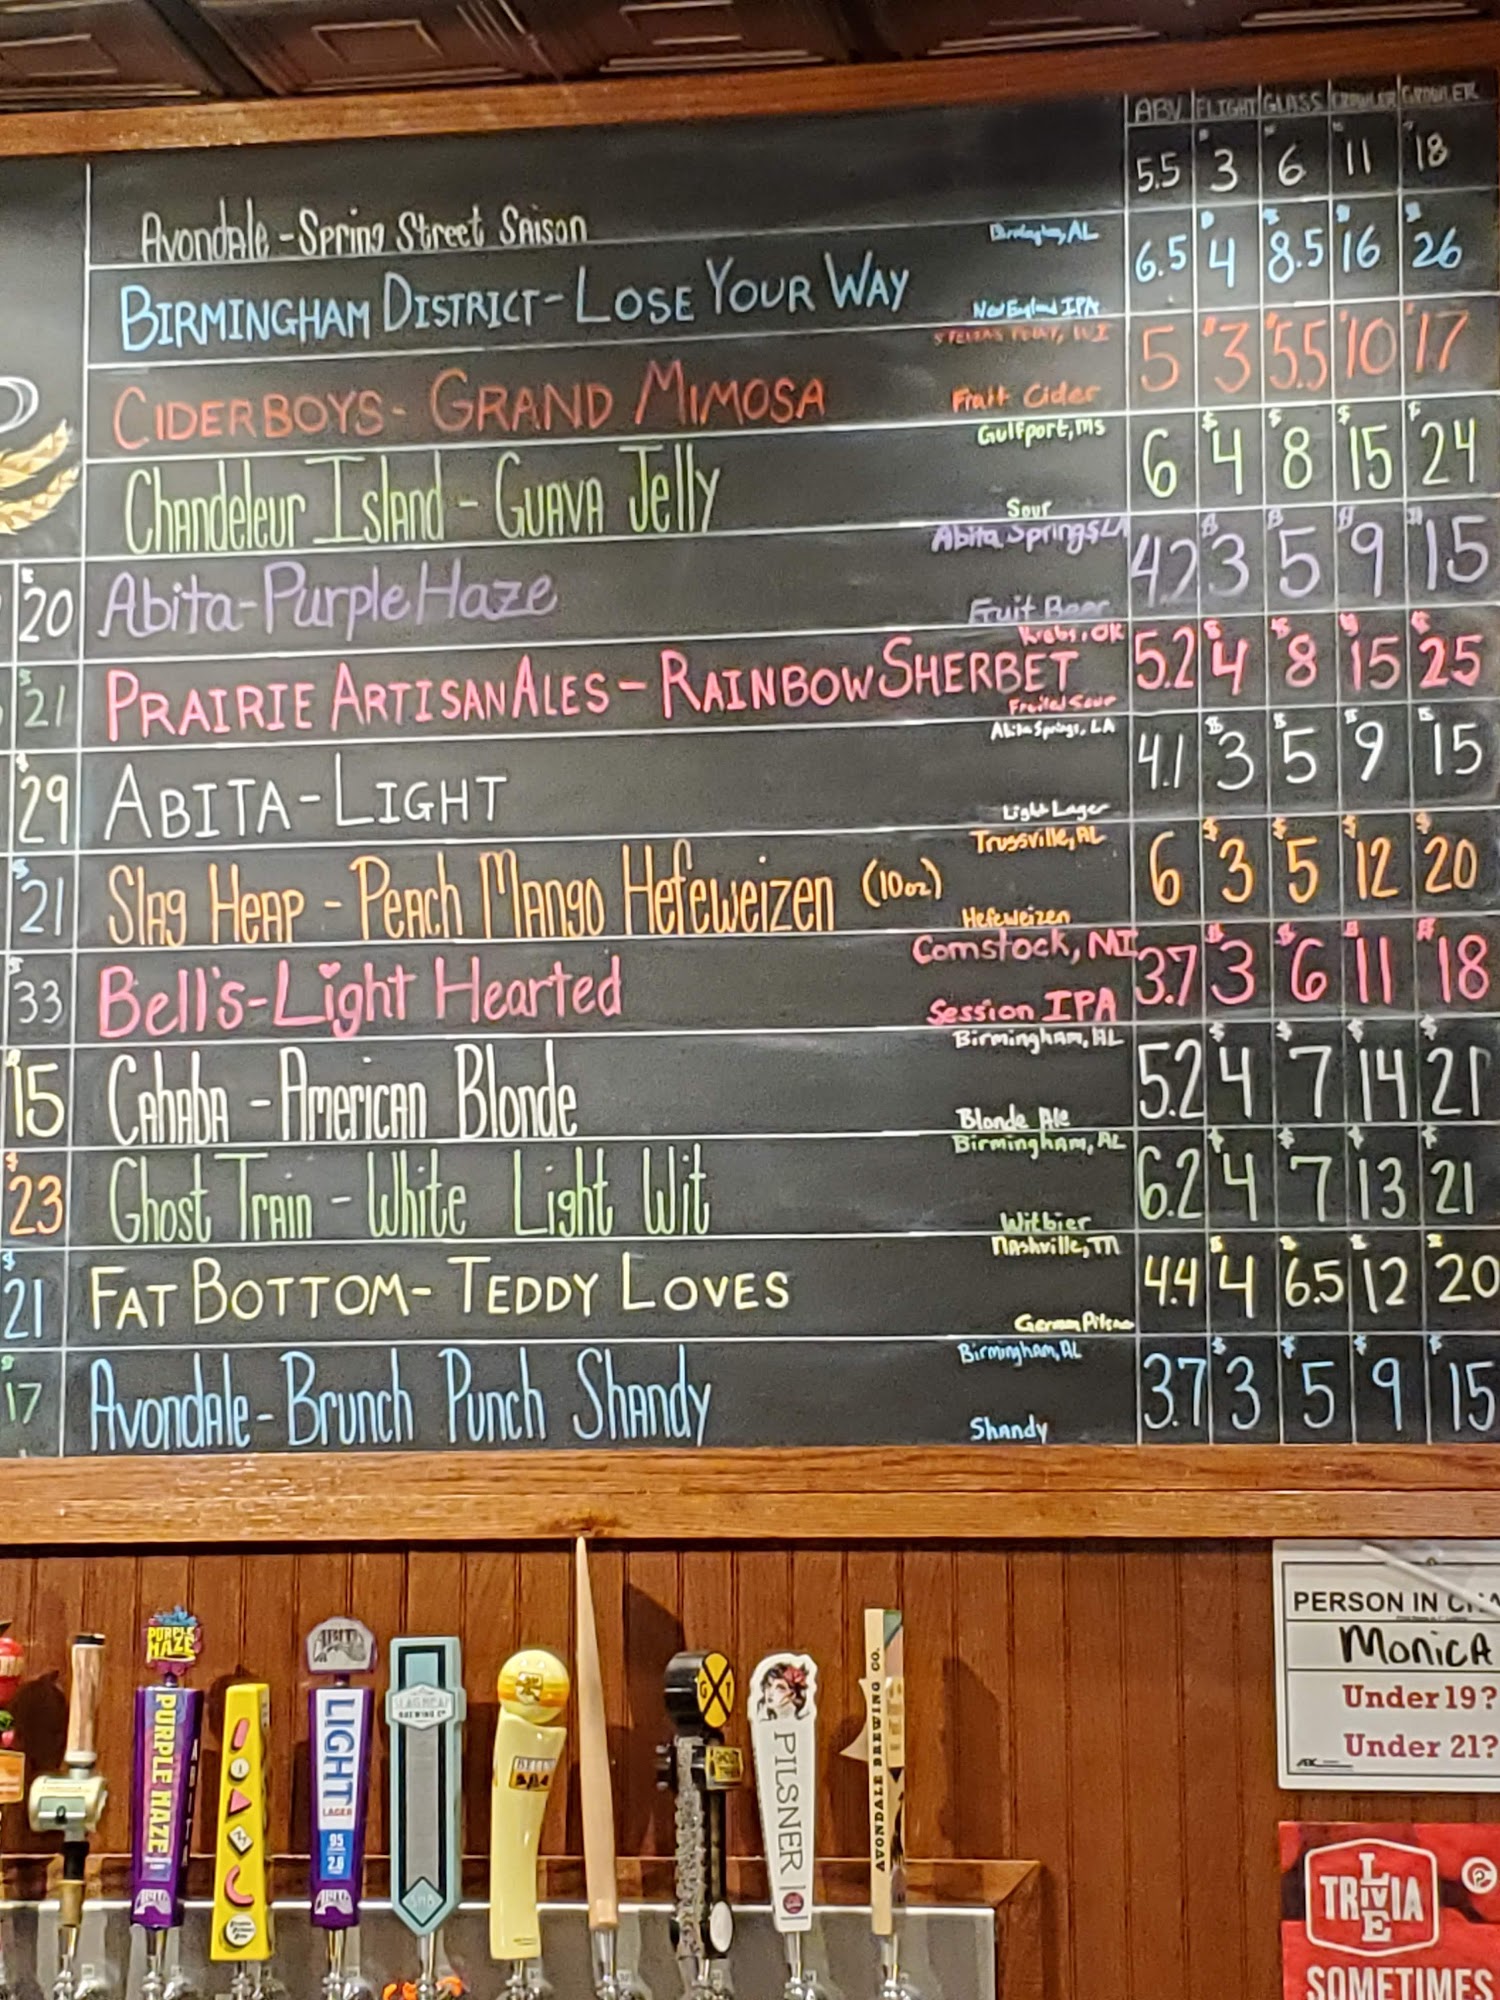 ABV FLIGHT GLASS CROWLER GROWLER
Avondale - Spring Street Saison 5.5 3 6 11 18
Birmingham, AL
BIRMINGHAM DISTRICT - LOSE YOUR WAY 6.5 4 8.5 16 26
New England IPA
STEVENS POINT, WI
CIDERBOYS - GRAND MIMOSA 5 $3 $5.5 $10 $17
Fruit Cider
Gulfport, MS
Chandeleur Island - Guava Jelly 6 $4 $8 $15 $24
Sour
Abita Springs LA
$20 Abita - Purple Haze 4.2 $3 $5 $9 $15
Fruit Beer
Krebs, OK
$21 PRAIRIE ARTISAN ALES - RAINBOW SHERBET 5.2 $4 $8 $15 $25
Fruited Sour
Abita Springs, LA
$29 ABITA - LIGHT 4.1 $3 $5 $9 $15
Light Lager
Trussville, AL
$21 Slag Heap - Peach Mango Hefeweizen (10oz) 6 $3 $5 $12 $20
Hefeweizen
Comstock, MI
$33 Bell's - Light Hearted 3.7 $3 $6 $11 $18
Session IPA
Birmingham, AL
$15 Cahaba - American Blonde 5.2 $4 $7 $14 $21
Blonde Ale
Birmingham, AL
$23 Ghost Train - White Light Wit 6.2 $4 $7 $13 $21
Witbier
Nashville, TN
$21 FAT BOTTOM - TEDDY LOVES 4.4 $4 $6.5 $12 $20
German Pilsner
Birmingham, AL
$17 Avondale - Brunch Punch Shandy 3.7 $3 $5 $9 $15
Shandy
PERSON IN CHA
Monica
Under 19?
Under 21?
PURPLE HAZE
PURPLE HAZE
ABITA
ABITA
ABITA
LIGHT
LAGER
95
2.8
ABITA
SLAG HEAP
BREWING CO
SHB
G T
PILSNER
AVONDALE BREWING CO.
LIVE
TRIVIA
SOMETIMES